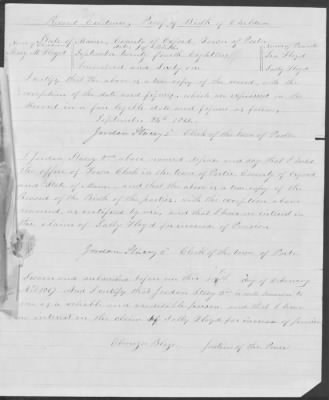 Record Evidence, Proof of Birth of Children
State of Maine, County of Oxford Town of Porter
Mary M. Floyd September twenty fourth Eighteen
hundred and sixty one Sally Floyd
I certify, that the above is a true copy of the record, with the
exception of the date and figures, which are expressed in the
record in a fair legible date and figures as follows,
September 24th 1861.
Jordan Stacy 2d Clerk of the town of Porter
I Jordan Stacy 2nd above named depose and say that I hold
the office of Town Clerk in the town of Porter County of Oxford
and State of Maine, and that the above is a true copy of the
Record of the Birth of the parties, with the exception above
named, as certified by me, and that I have no interest in
the claim of Sally Floyd for increase of Pension
Jordan Stacy 2d Clerk of the town of Porter
Sworn and subscribed before me this day of February
And I certify that Jordan Stacy 2nd is well known to
me as a reliable and creditable person and that I have
no interest in the claim of Sally Floyd for increase of pension
Justice of the Peace